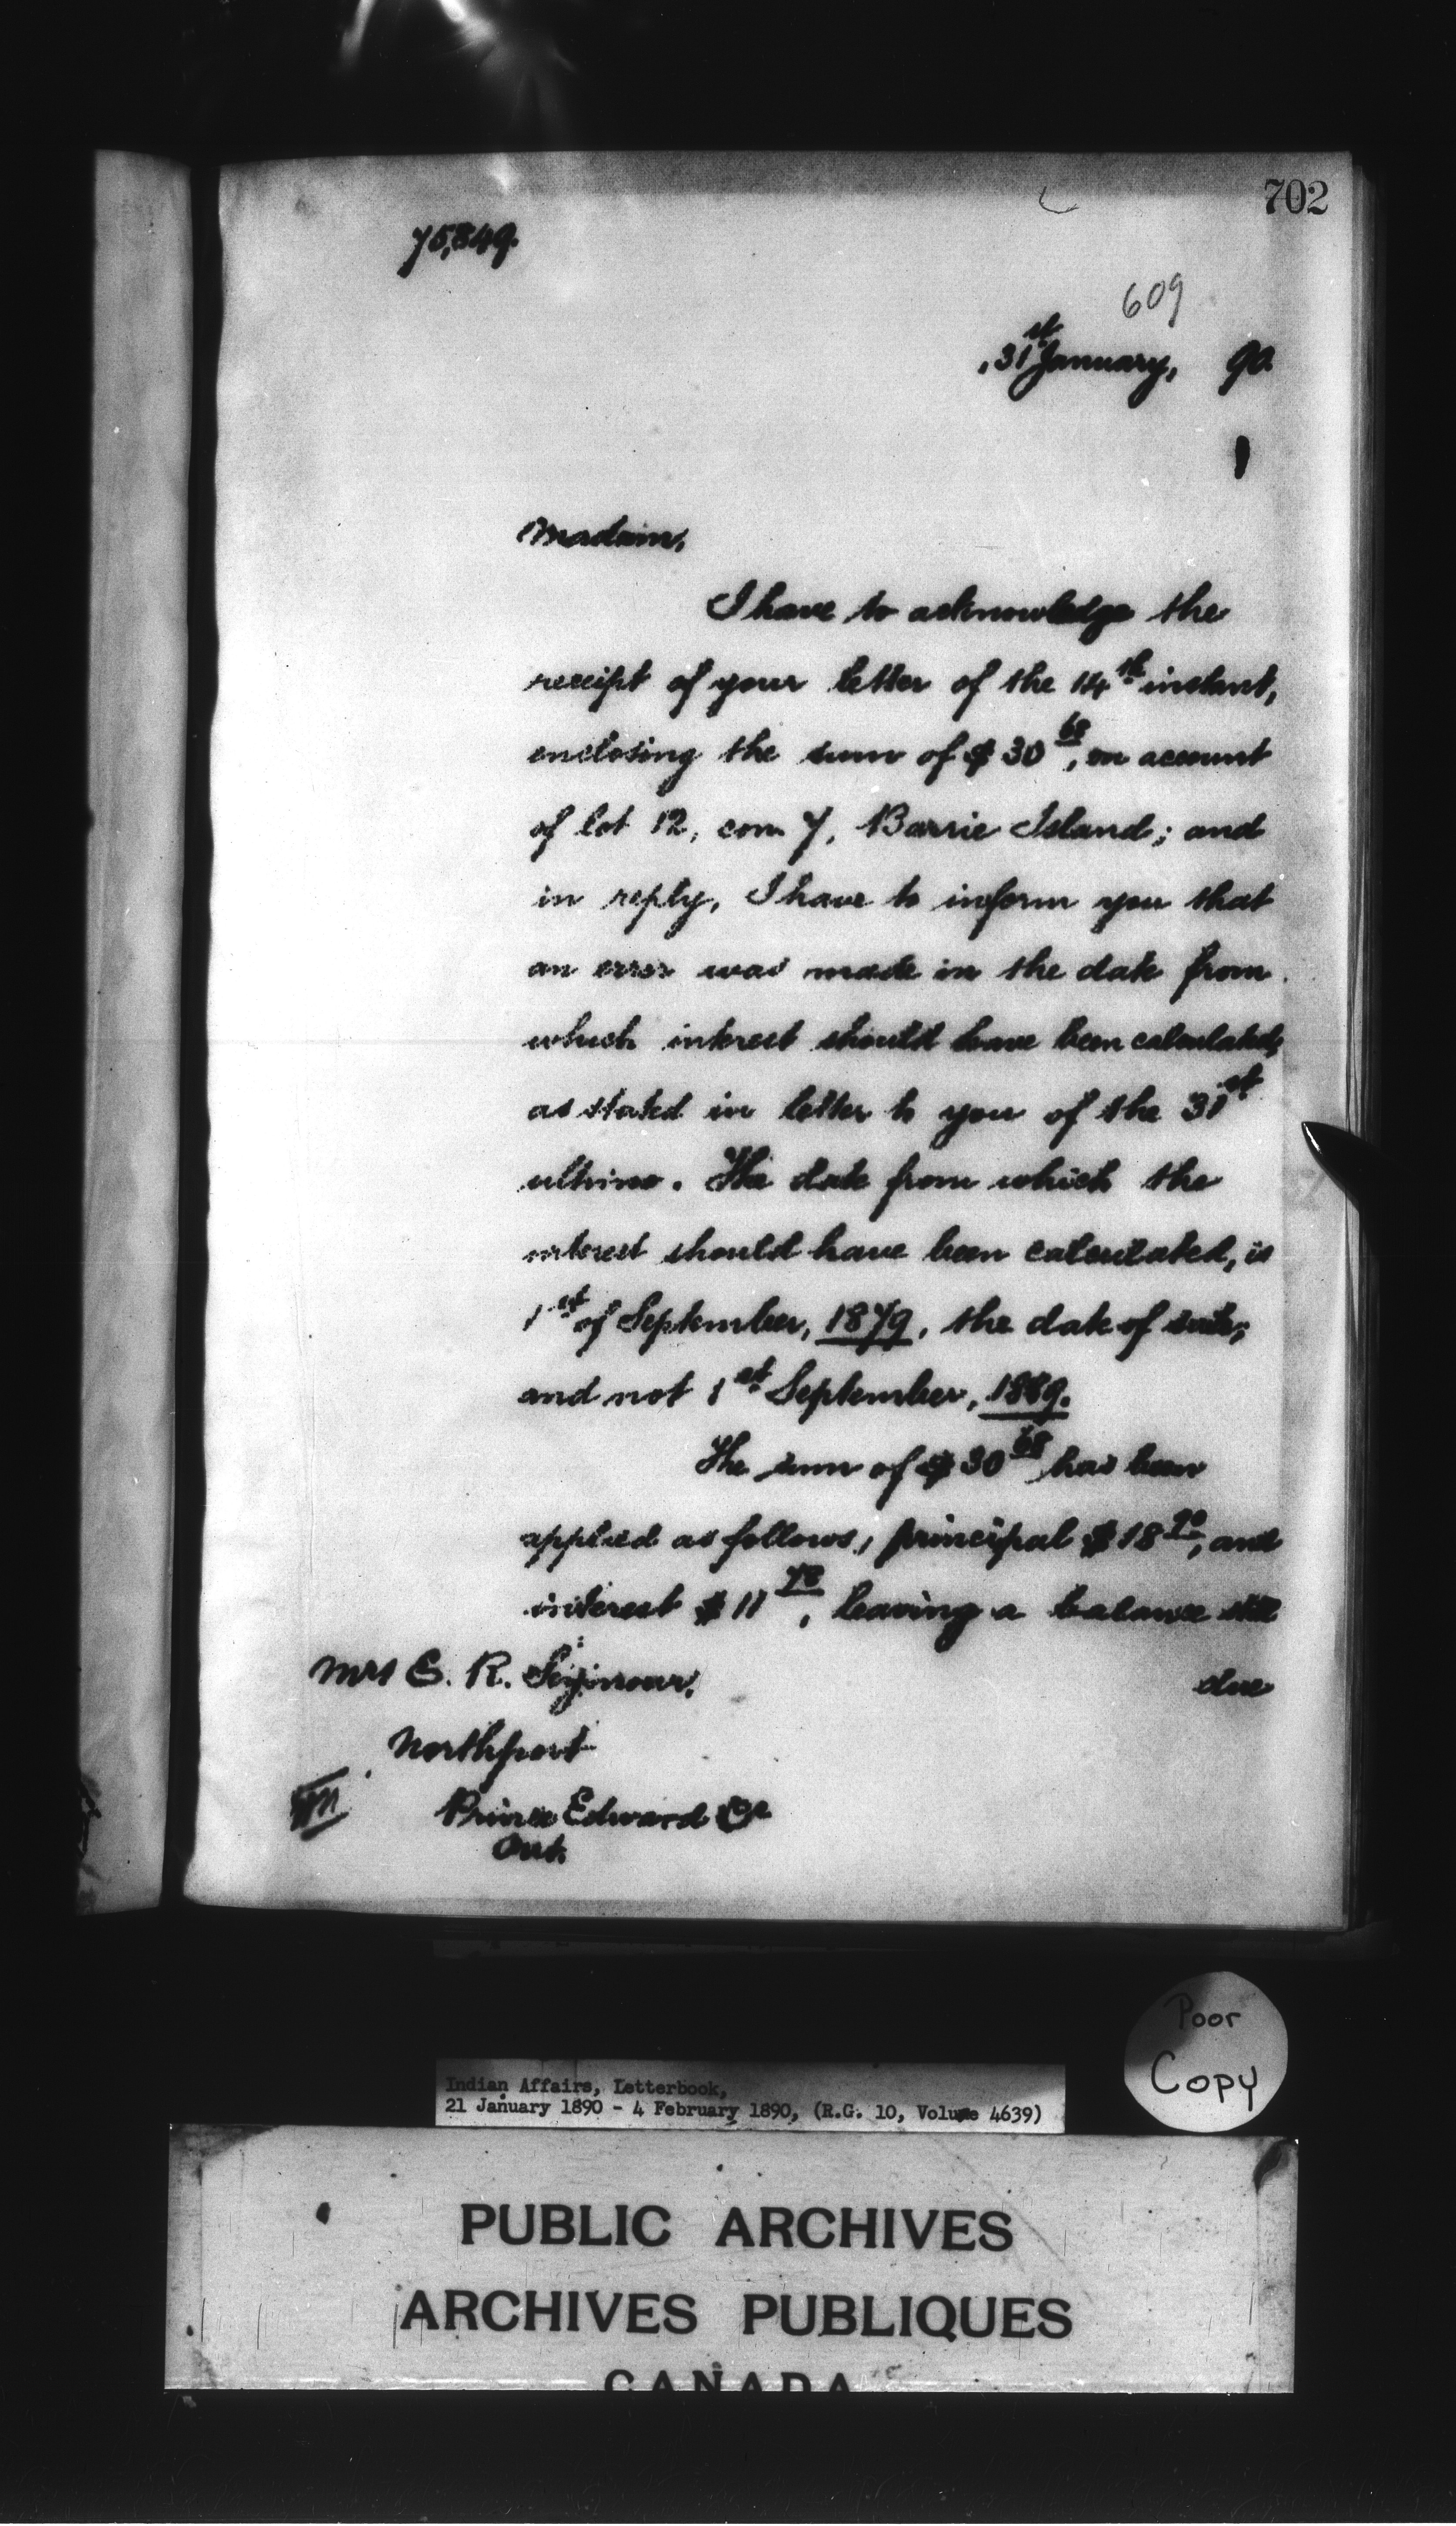 702
75,849.
609
31st January, 90
Madam,
I have to acknowledge the
receipt of your letter of the 14th instant,
enclosing the sum of $30 68, on account
of lot 12, con. 7, Barrie Island; and
in reply, I have to inform you that
an error was made in the date from
which interest should have been calculated,
as stated in letter to you of the 31st
ultimo. The date from which the
interest should have been calculated, is
1st of September, 1879, the date of sale;
and not 1st September, 1889.
The sum of $30 68 has been
applied as follows, principal $18 90, and
interest $11 78, leaving a balance still
due
Mrs E. R. Seymour,
Northport
Prince Edward Co
Ont.
Poor
Copy
Indian Affairs, Letterbook,
21 January 1890 - 4 February 1890, (R.G. 10, Volume 4639)
PUBLIC ARCHIVES
ARCHIVES PUBLIQUES
CANADA